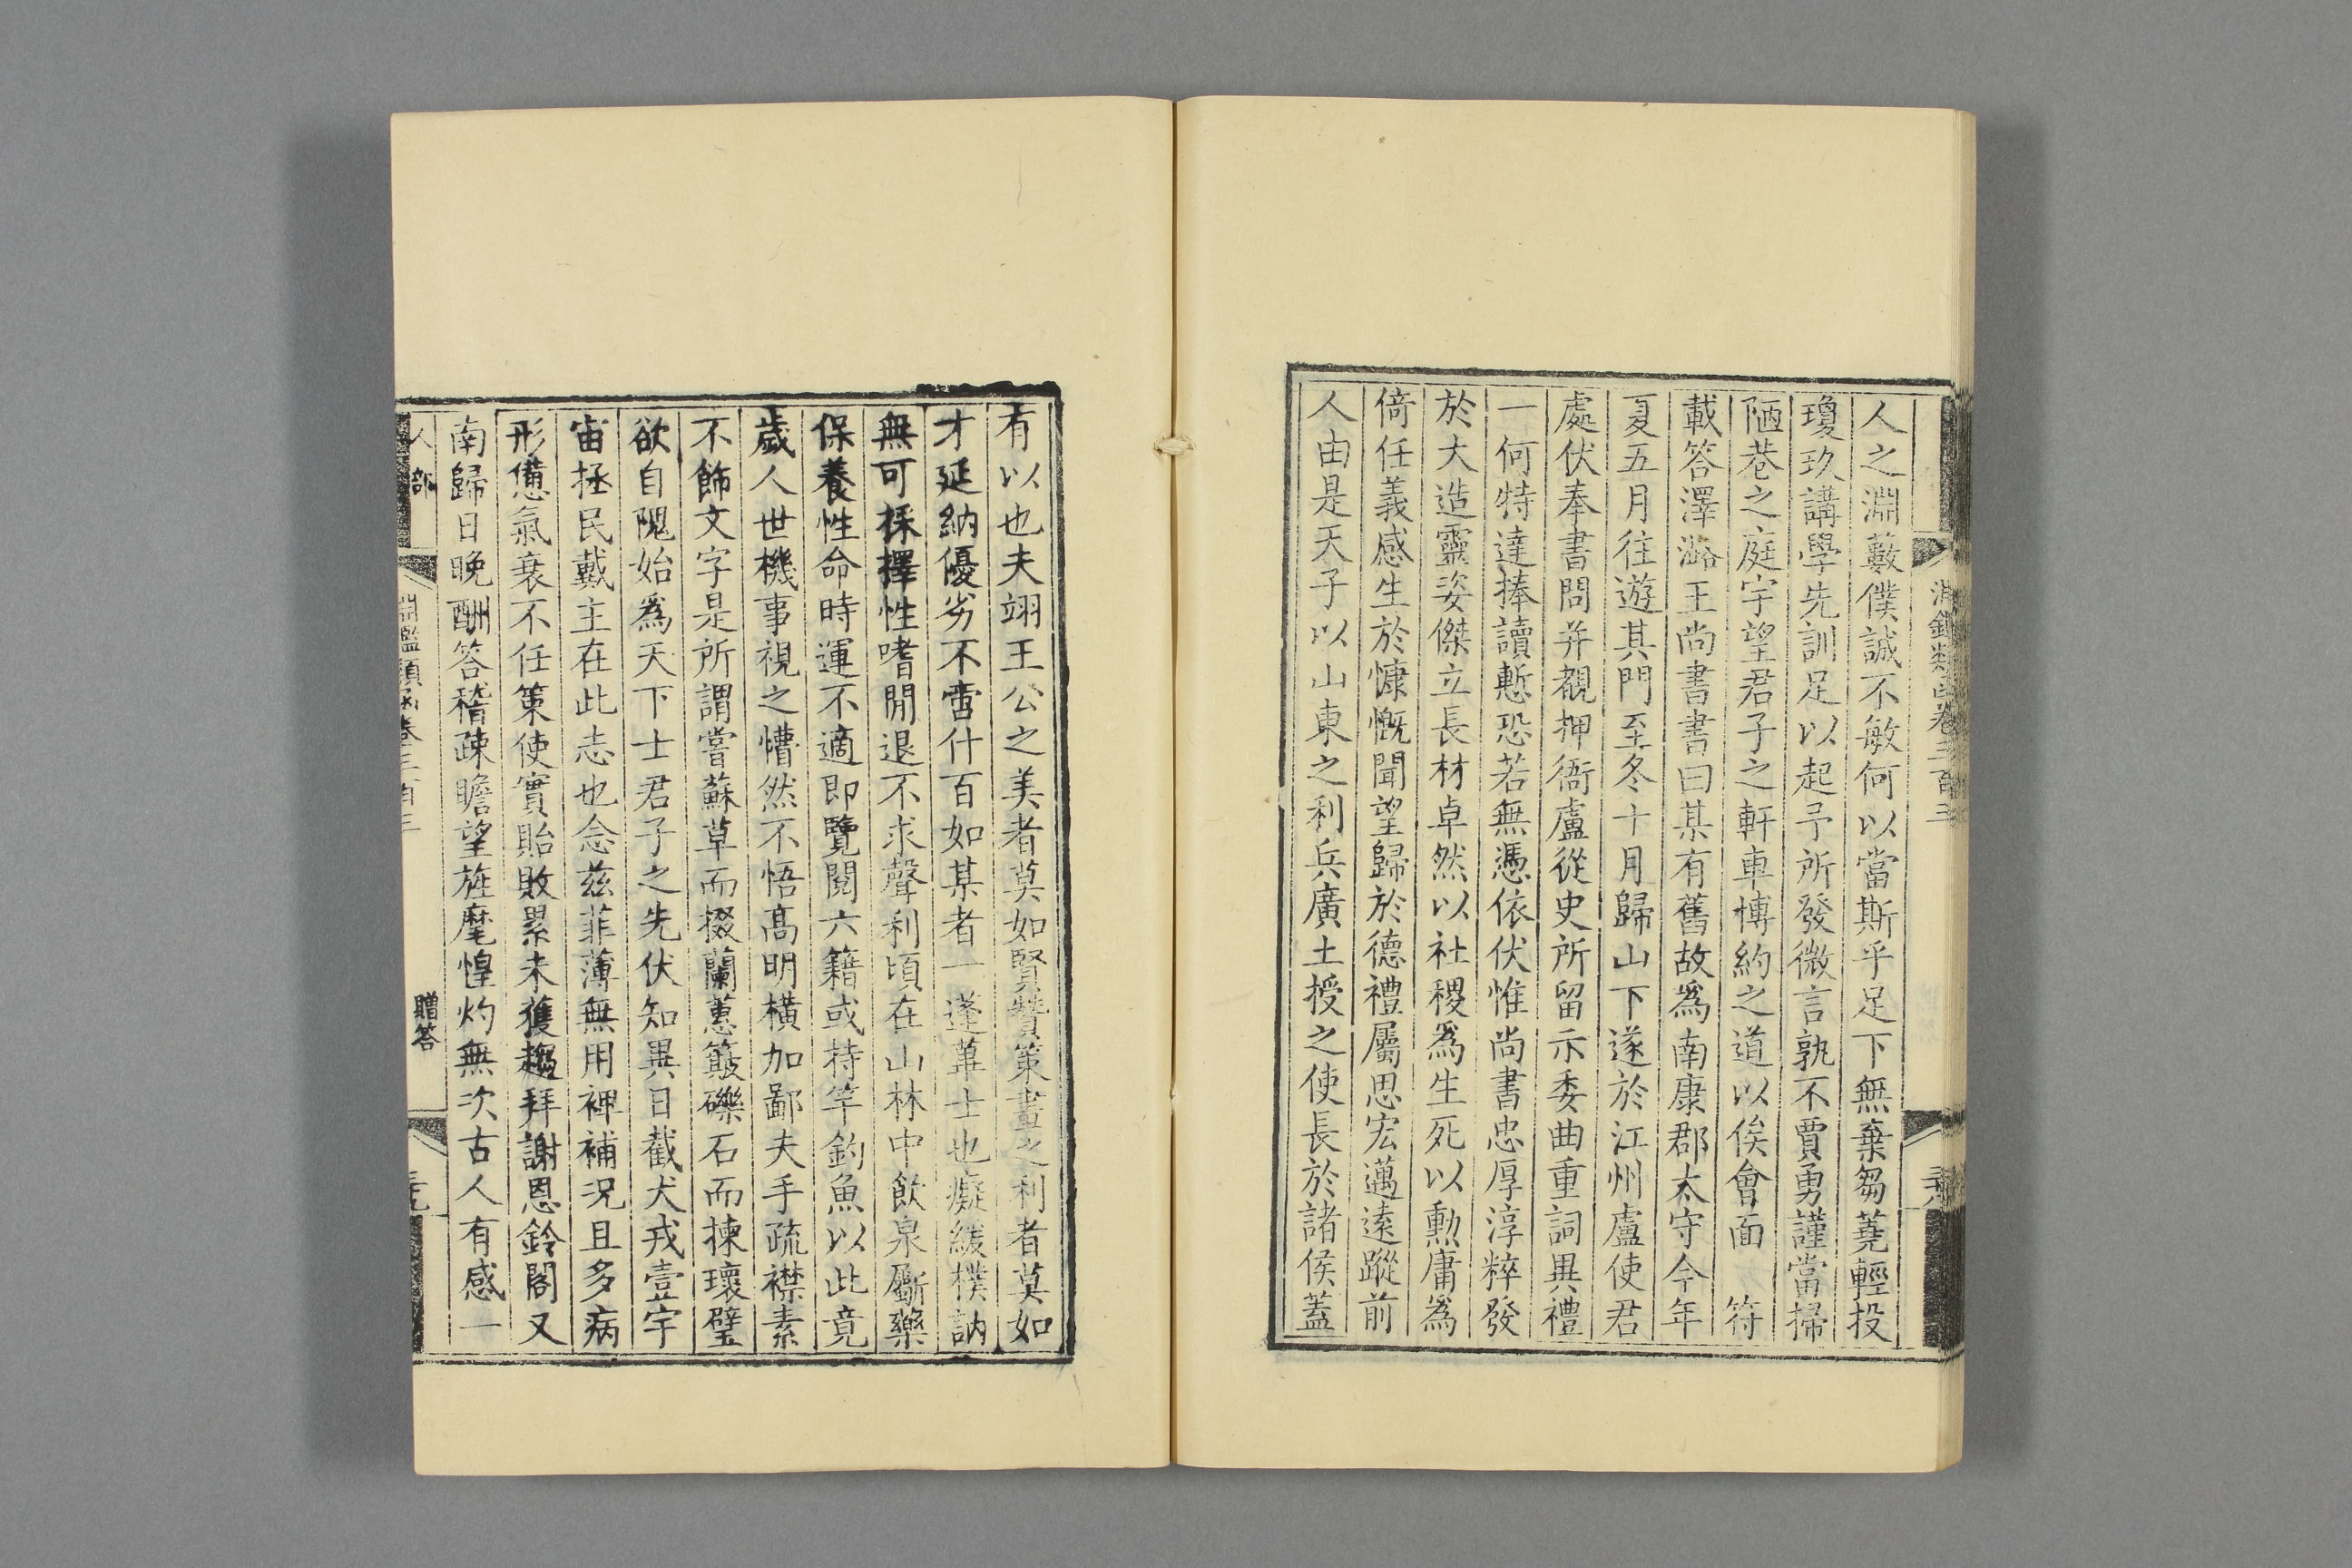 人之淵藪僕誠不敏何以當斯乎足下無棄芻蕘輕投
瓊玖講學先訓足以起予所發微言孰不賈勇謹當掃
陋巷之庭宇望君子之軒車博約之道以俟會面 符
載答澤潞王尚書書曰某有舊故爲南康郡太守今年
夏五月往遊其門至冬十月歸山下遂於江州盧使君
處伏奉書問并覩押衙盧從史所留示委曲重詞異禮
一何特達捧讀慙恐若無憑依伏惟尚書忠厚淳粹發
於大造靈姿傑立長材卓然以社稷爲生死以勳庸爲
倚任義感生於慷慨聞望歸於德禮屬思宏邁遠蹤前
人由是天子以山東之利兵廣土授之使長於諸侯蓋
有以也夫翊王公之美者莫如賢贊策畫之利者莫如
才延納優劣不啻什百如某者一蓬蓽士也癡緩樸訥
無可採擇性嗜閒退不求聲利頃在山林中飲泉斸藥
保養性命時運不適即覽閱六籍或持竿釣魚以此竟
歲人世機事視之懵然不悟高明橫加鄙夫手疏襟素
不飾文字是所謂嘗蘇草而掇蘭蕙簸礫石而揀瓌璧
欲自隗始爲天下士君子之先伏知異日截犬戎壹宇
宙拯民戴主在此志也念兹菲薄無用裨補況且多病
形憊氣衰不任策使實貽敗累未獲趨拜謝恩鈴閣又
南歸日晚酬答稽疎瞻望旌麾惶灼無次古人有感一
人部
淵鑑類函卷三百三
贈答